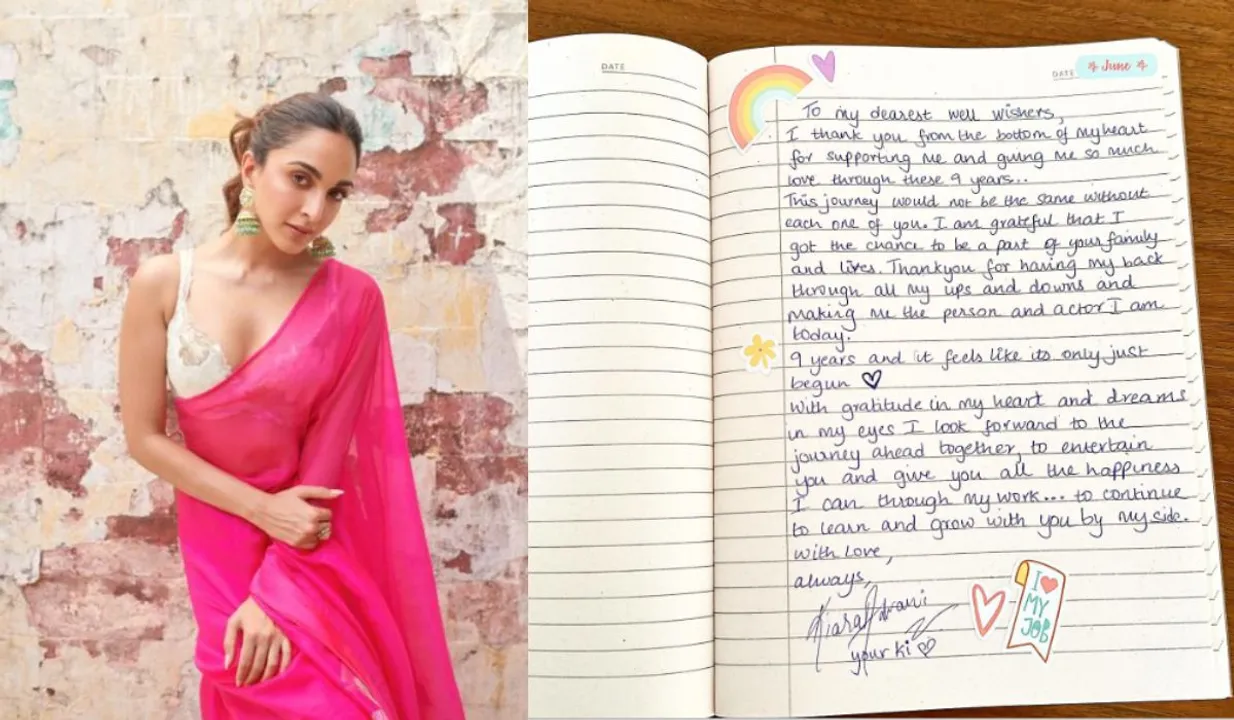 DATE
DATE
June
To my dearest well wishers,
I thank you from the bottom of my heart
for supporting me and giving me so much
love through these 9 years...
This journey would not be the same without
each one of you. I am grateful that I
got the chance to be a part of your family
and lives. Thankyou for having my back
through all my ups and downs and
making me the person and actor I am
today.
9 years and it feels like its only just
begun ♡
With gratitude in my heart and dreams
in my eyes I look forward to the
journey ahead together, to entertain
you and give you all the happiness
I can through my work... to continue
to learn and grow with you by my side.
with love,
always,
Kiara Advani
your ki ♡
I ❤
MY
JOB